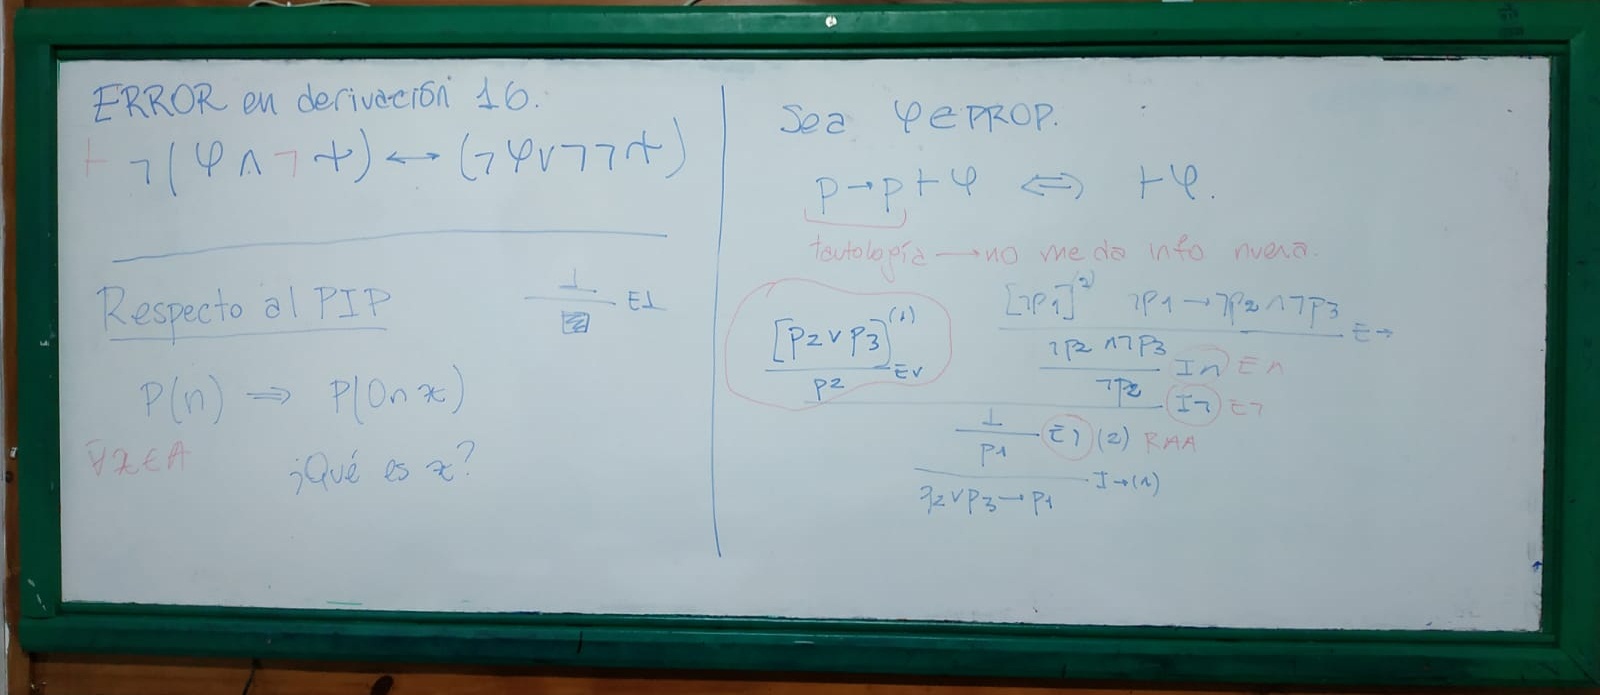 ERROR en derivación 16.
⊢ ¬(φ ∧ ¬ψ) ↔ (¬φ ∨ ¬¬ψ)
Respecto al PIP
⊥
E⊥
P(n) ⇒ P(0nx)
∀x∈A
¿Qué es x?
Sea φ ∈ PROP.
p → p ⊢ φ ⇔ ⊢ φ.
tautología → no me da info nueva.
[¬p1]^(2) ¬p1 → ¬p2 ∧ ¬p3
E→
[p2 ∨ p3]^(1)
¬p2 ∧ ¬p3
I∧ E∧
E∨
p2
¬p2
I¬ E¬
⊥
E¬ (2) RAA
p1
I→(1)
p2 ∨ p3 → p1